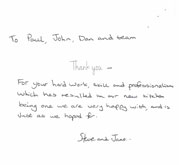 To Paul, John, Dan and team
Thank you
For your hard work, skill and professionalism
which has resulted in our new kitchen
being one we are very happy with, and is
just as we hoped for.
Steve and June